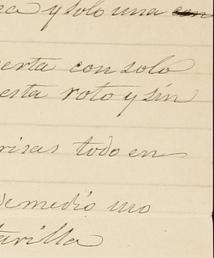 y solo una
erta con solo
esta roto y sin
risas todo en
de medio uno
arilla